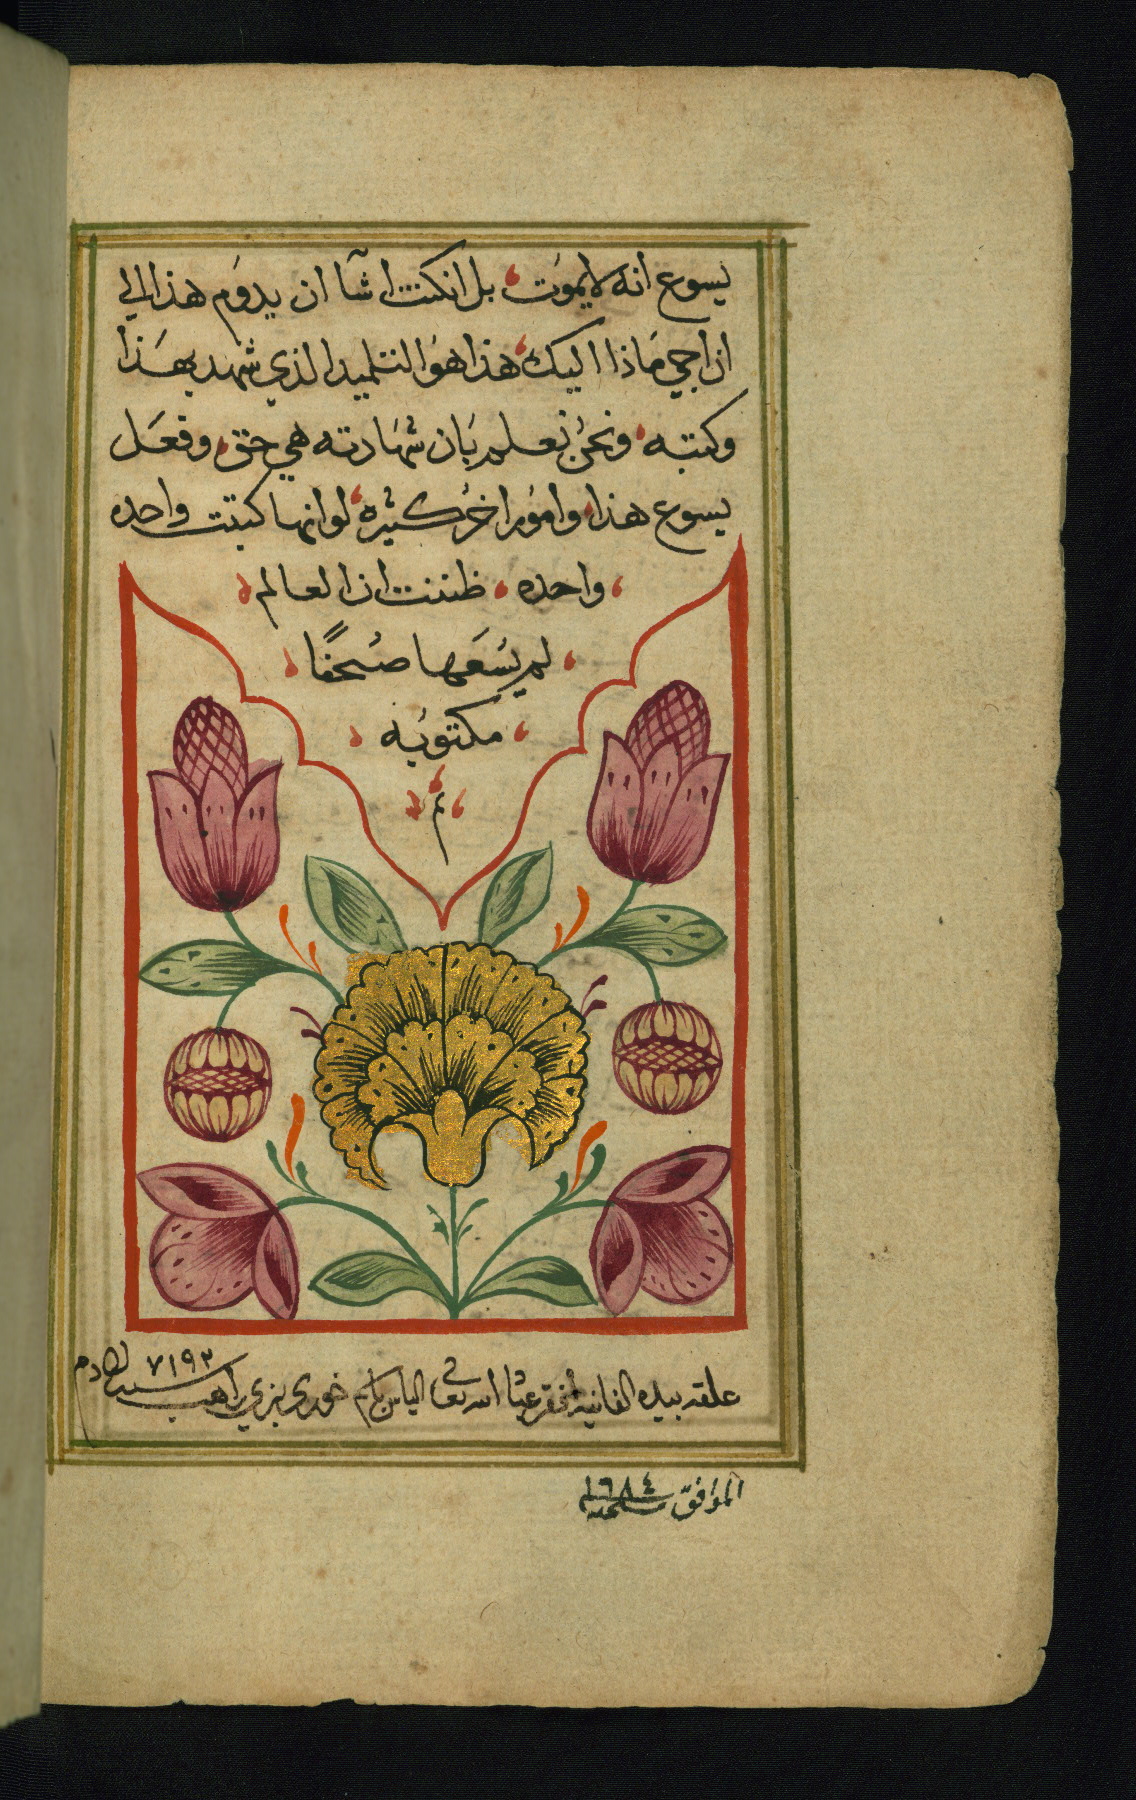 يسوع انه لايموت بل انكنت اشآ ان يدوم هذا الي
ان اجي ماذا اليك هذا هو التلميد الذي شهد بهذا
وكتبه ونحن نعلم بان شهادته هي حق وفعل
يسوع هذا وامورا اخر كثيره لو انها كتبت واحده
واحده ظننت ان العالم
لم يسعها صحفًا
مكتوبه
م
علقه بيده الفانيه افقر الله تعا الياس خوري بزي راهب سنة ٧١٩٢ لادم
الموافق سنة ١٦٨٤